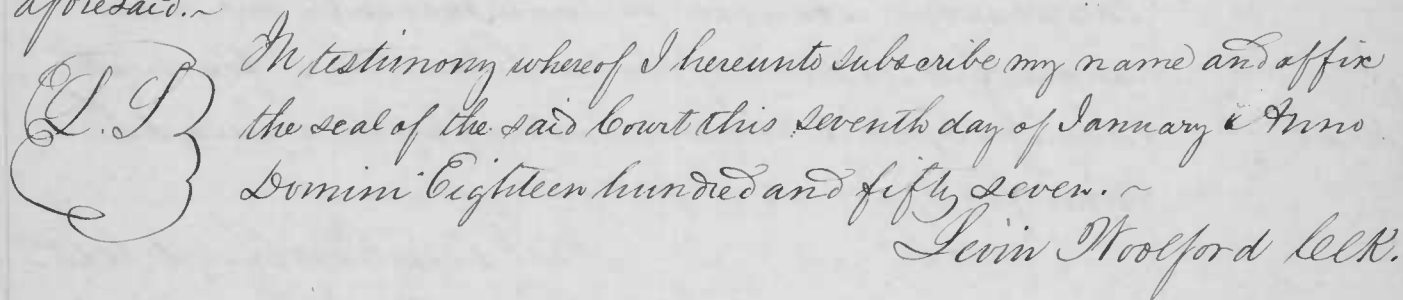 aforesaid.~
In testimony whereof I hereunto subscribe my name and affix
L.S the seal of the said Court this seventh day of January Anno
Domini Eighteen hundred and fifty seven.~
Levin Woolford Clk.